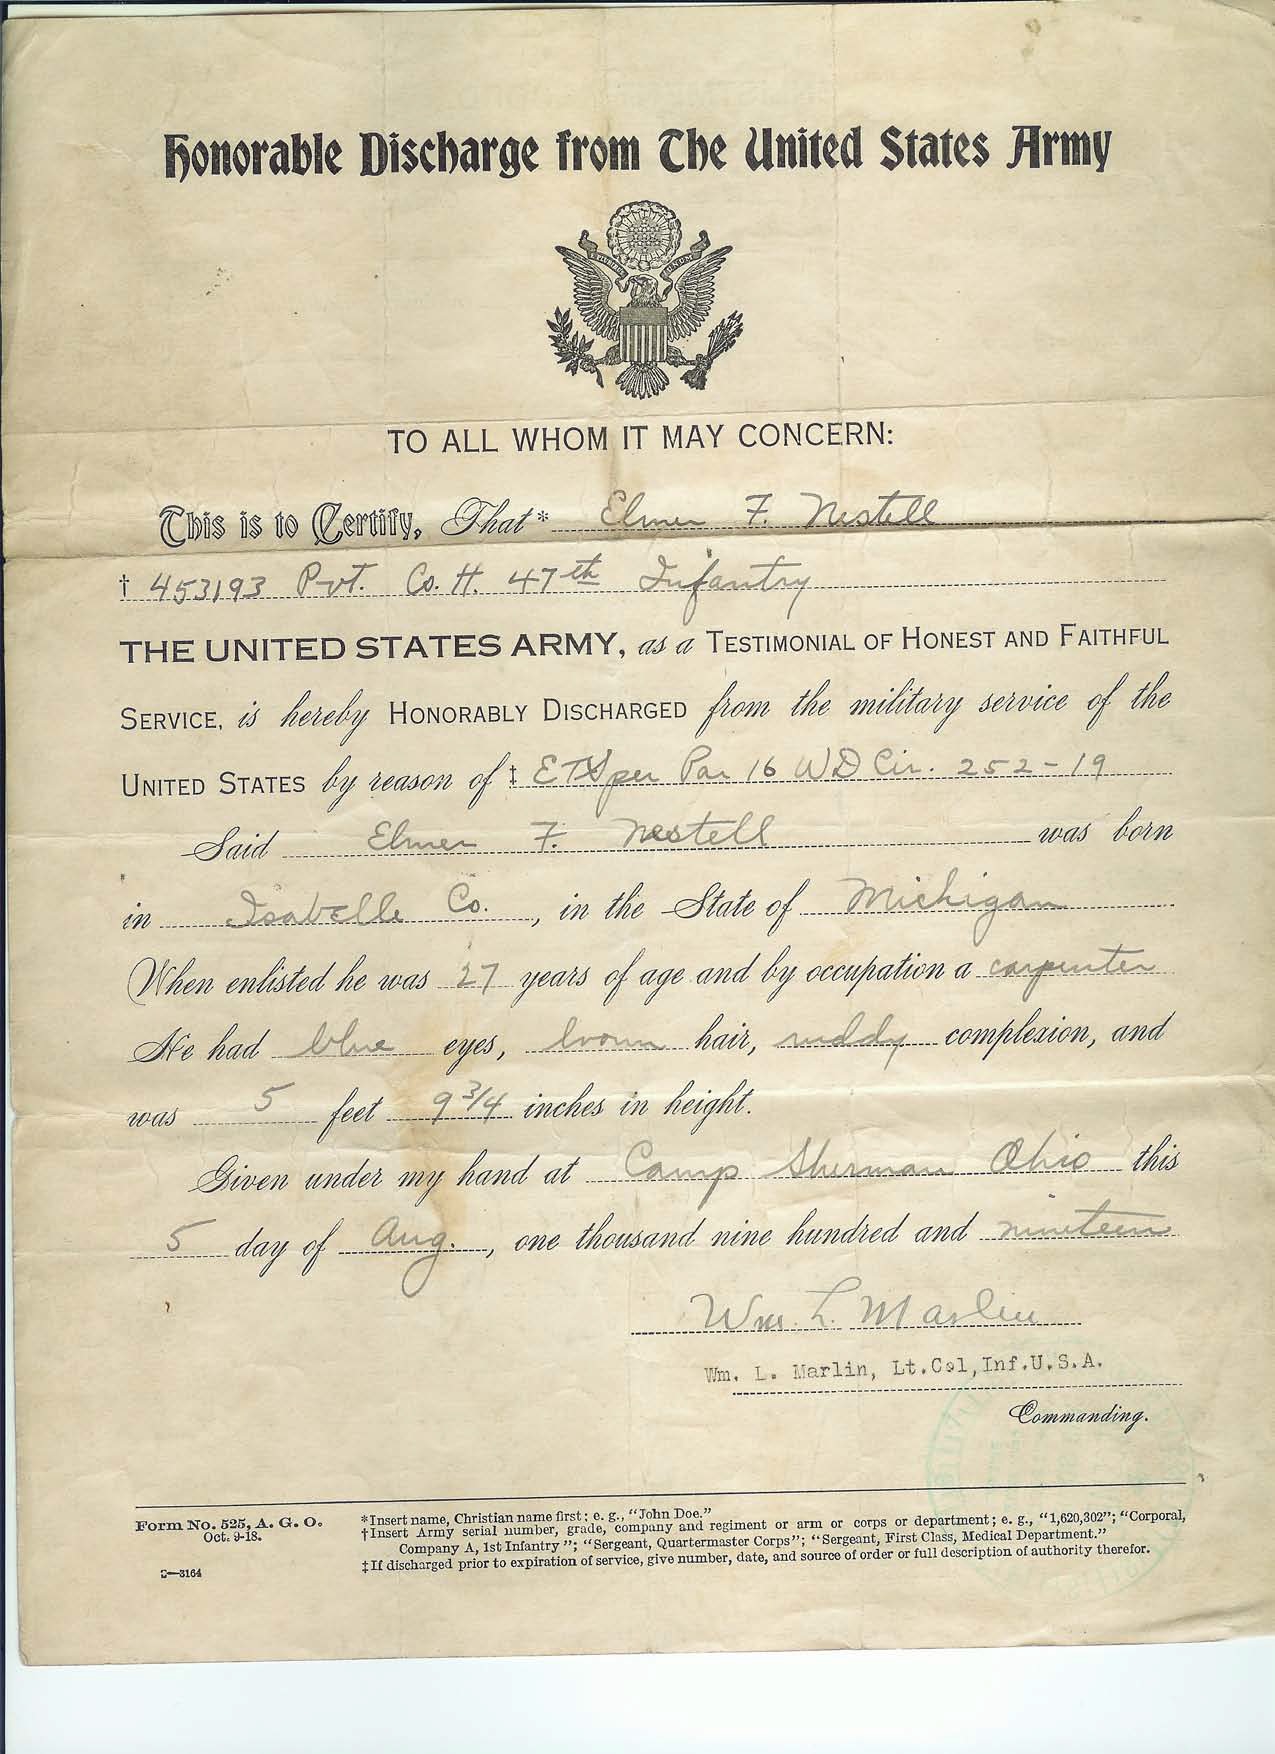 Honorable Discharge from The United States Army
TO ALL WHOM IT MAY CONCERN:
This is to Certify, That* Elmer F. Nestell
† 453193 Pvt. Co. H. 47th Infantry
THE UNITED STATES ARMY, as a TESTIMONIAL OF HONEST AND FAITHFUL
SERVICE, is hereby HONORABLY DISCHARGED from the military service of the
UNITED STATES by reason of ‡ ETS per Par 16 WD Cir. 252-19
Said Elmer F. Nestell was born
in Isabelle Co., in the State of Michigan
When enlisted he was 27 years of age and by occupation a carpenter
He had blue eyes, brown hair, ruddy complexion, and
was 5 feet 9 3/4 inches in height.
Given under my hand at Camp Sherman Ohio this
5 day of Aug., one thousand nine hundred and nineteen
Wm. L. Marlin
Wm. L. Marlin, Lt.Col,Inf.U.S.A.
Commanding.
Form No. 525, A. G. O.
Oct. 9-18.
3—3164
*Insert name, Christian name first; e. g., "John Doe."
†Insert Army serial number, grade, company and regiment or arm or corps or department; e. g., "1,620,302"; "Corporal,
Company A, 1st Infantry"; "Sergeant, Quartermaster Corps"; "Sergeant, First Class, Medical Department."
‡If discharged prior to expiration of service, give number, date, and source of order or full description of authority therefor.